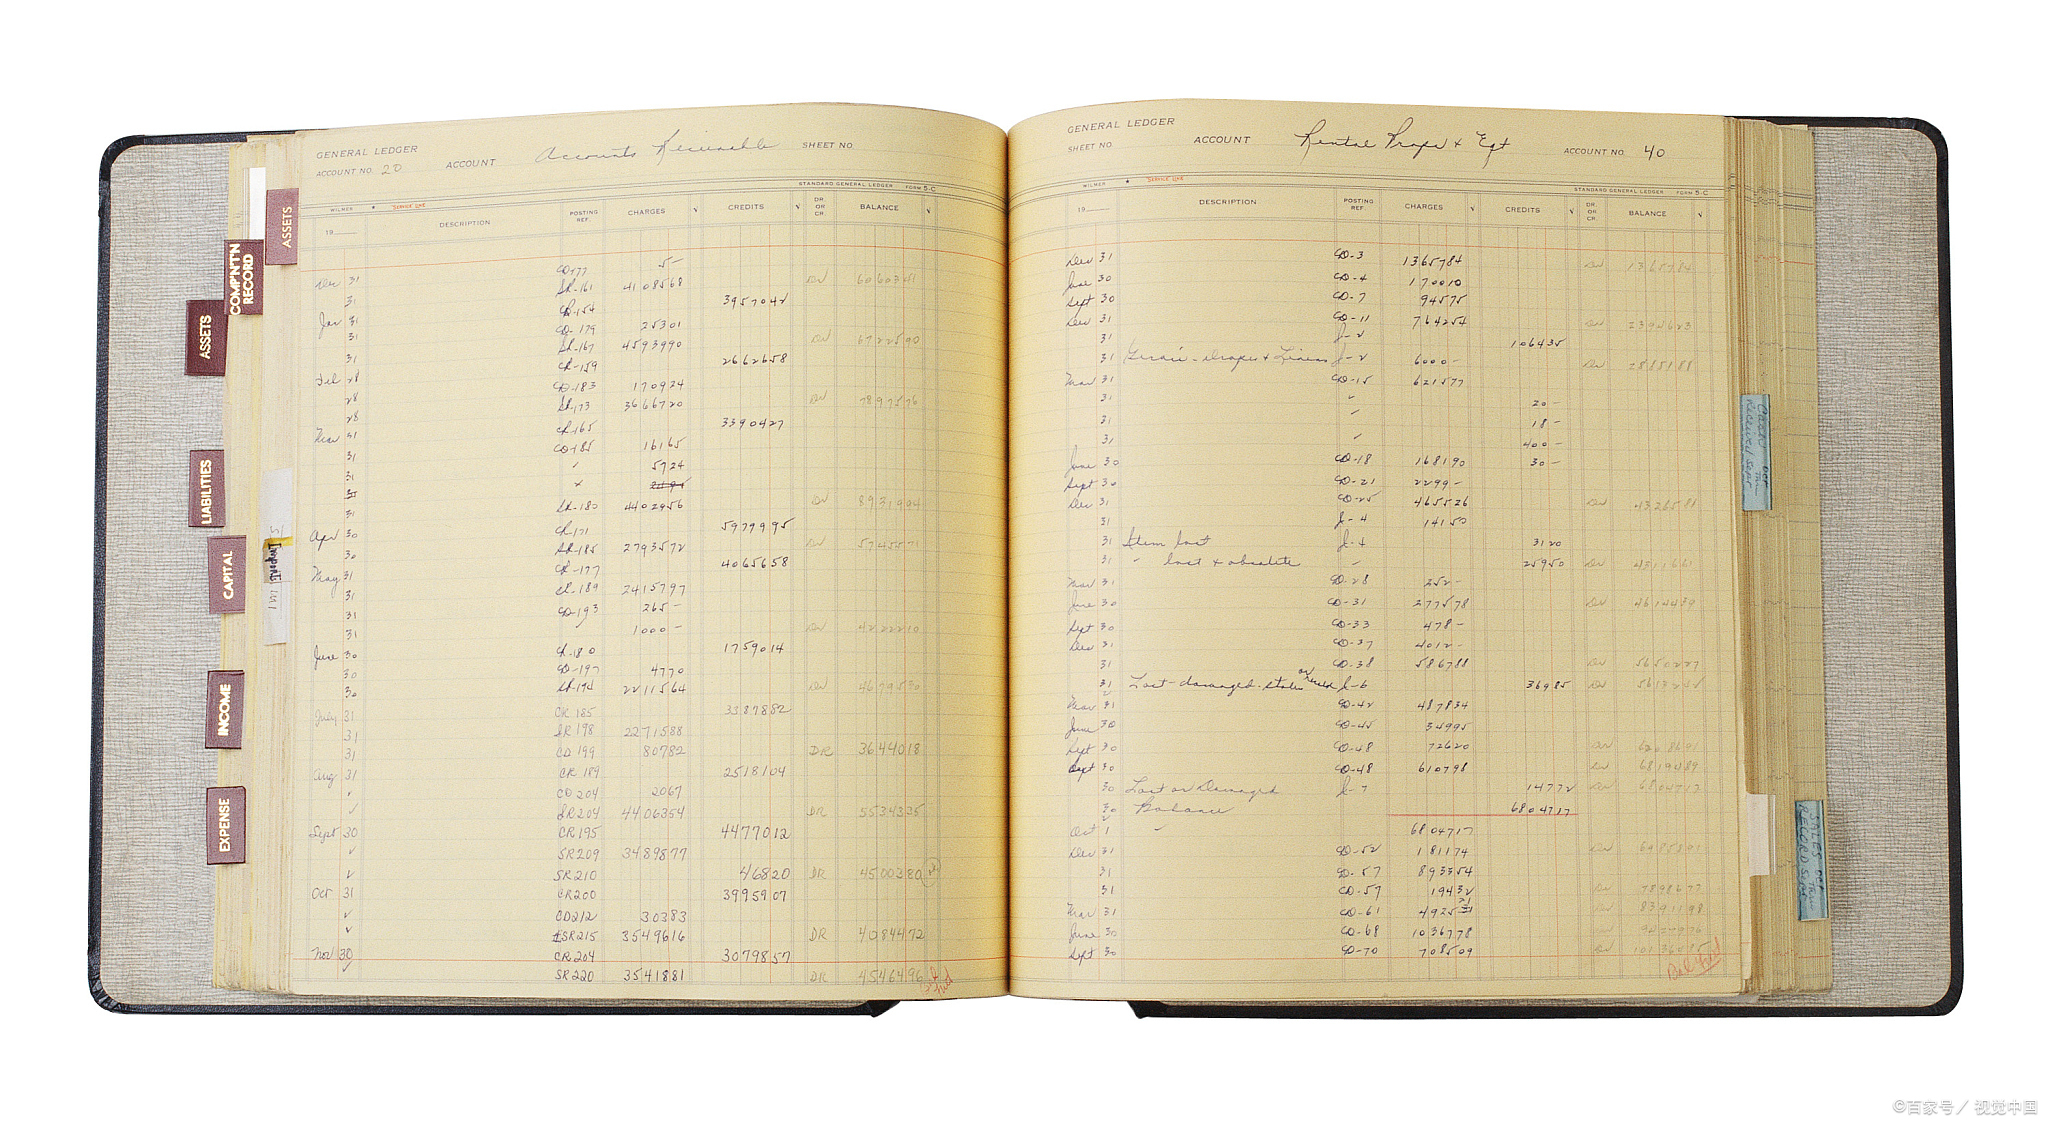 GENERAL LEDGER
ACCOUNT NO. 20 ACCOUNT Accounts Receivable SHEET NO.
STANDARD GENERAL LEDGER FORM 5-C
WILMER ★ SERVICE LINE
19 DESCRIPTION POSTING REF. CHARGES √ CREDITS √ DR. OR CR. BALANCE √
CD-177 5-
Dec 31 SR-161 4108568 Dr
31 CR-154 3957042
Jan 31 CD-179 25301
31 SR-167 4593990 Dr 6722590
31 CR-159 2662658
Feb 28 CD-183 170924
28 SR-173 3666720 Dr 7897576
28 CR-165 3390427
Mar 31 CD-185 16165
31 " 5724
31 "
31 SR-180 4402956 Dr 8931994
Apr 30 CR-171 5979995
30 SR-185 2793572 Dr 5745571
May 31 CR-177 4065658
31 SR-189 2415797
31 CD-193 265-
31 1000- Dr 4222210
June 30 CR-180 1759014
30 CD-197 4770
30 SR-194 2211564 Dr 4679530
July 31 CR 185 3387882
31 SR 198 2271588
31 CD 199 80782 DR 3644018
Aug 31 CR 189 2518104
√ CD 204 2067
√ SR 204 4406354 DR 5534335
Sept 30 CR 195 4477012
√ SR 209 3489877
√ SR 210 46820 DR 4500380
Oct 31 CR 200 3995907
√ CD 212 30383
√ SR 215 3549616 DR 4084472
Nov 30 CR 204 3079857
√ SR 220 3541881 DR 4546496
ASSETS
COMP'NT'N RECORD
ASSETS
LIABILITIES
CAPITAL
INCOME
EXPENSE
GENERAL LEDGER
SHEET NO. ACCOUNT Rental Props & Eqt ACCOUNT NO. 40
STANDARD GENERAL LEDGER FORM 5-C
WILMER ★ SERVICE LINE
19 DESCRIPTION POSTING REF. CHARGES √ CREDITS √ DR. OR CR. BALANCE √
Dec 31 CD-3 1365784 Dr 1365784
June 30 CD-4 170010
Sept 30 CD-7 94575
Dec 31 CD-11 764254 Dr 2394623
31 J-2 106435
31 Drapes & Linens J-2 6000- Dr 2888188
Mar 31 CD-15 621577
31 " 20-
31 " 18-
31 " 400-
June 30 CD-18 168190 30-
Sept 30 CD-21 2299-
Dec 31 CD-25 465526 Dr 4326581
31 J-4 14150
31 Item lost J-4 3120
31 " lost & obsolete " 25950 Dr 4311661
Mar 31 CD-28 252-
June 30 CD-31 277578 Dr 4614439
Sept 30 CD-33 478-
Dec 31 CD-37 4012-
31 CD-38 586788 Dr 5650227
31 Lost-damaged-stolen or J-6 36985 Dr 5613242
Mar 31 CD-42 487834
June 30 CD-45 34995
Sept 30 CD-48 72620 Dr 6208691
Sept 30 CD-48 610798 Dr 6819489
30 Lost or Damaged J-7 14772 Dr 6804717
30 Balance 6804717
Oct 1 " 6804717
Dec 31 CD-52 181174 Dr 6985891
31 CD-57 893354
31 CD-57 19432 Dr 7898677
Mar 31 CD-61 Dr 8391198
June 30 CD-68 1036778 9427976
Sept 30 CD-70 708509 Dr 10136485
©百家号／视觉中国